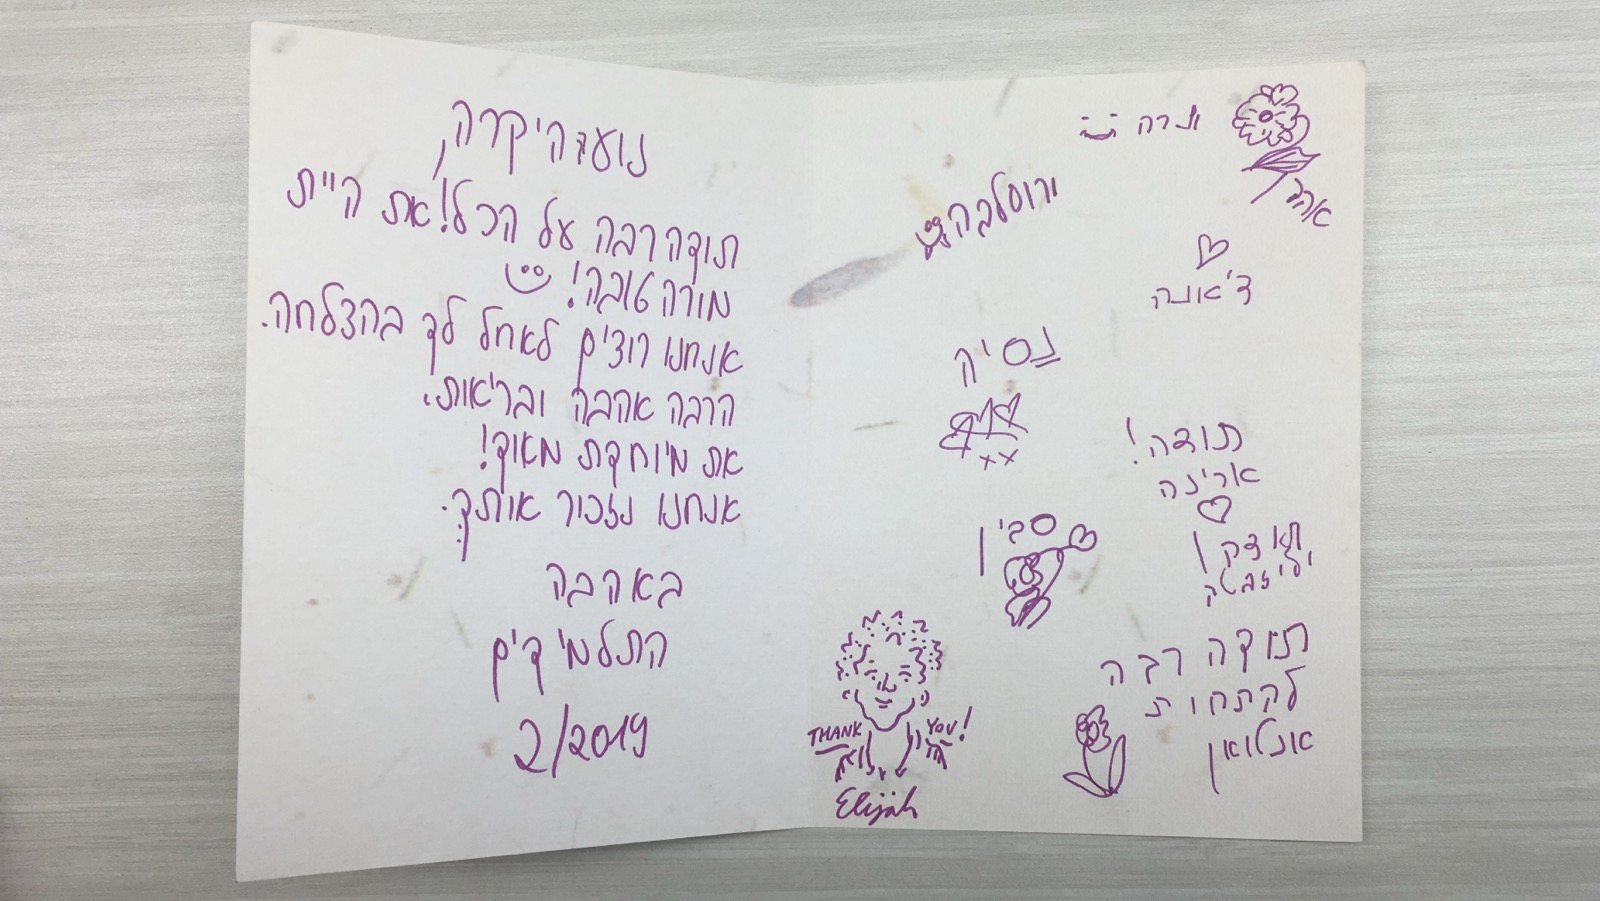 נועה היקרה,
תודה רבה על הכל! את היית
מורה טובה!
אנחנו רוצים לאחל לך בהצלחה.
הרבה אהבה ובריאות.
את מיוחדת מאוד!
אנחנו נזכור אותך.
באהבה
התלמידים
2/2019
שרה
אוהד
ירוסלבה
ד'אנה
נסיה
תודה!
ארינה
סבין
תודה רבה
אנטואן
THANK YOU!
Elijah